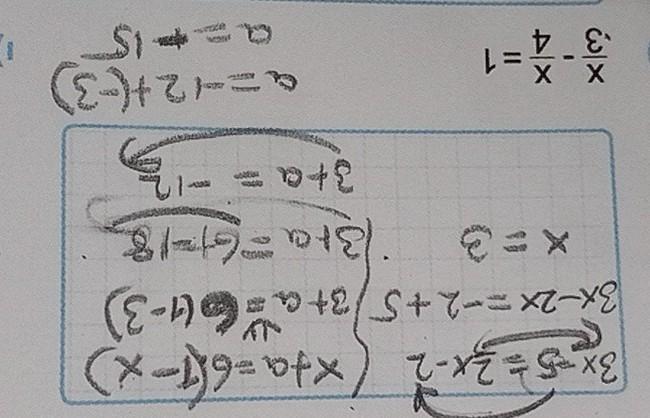 3x-5=2x-2
3x-2x=-2+5
x=3
x+a=6(1-x)
3+a=6(1-3)
3+a=6-18
3+a=-12
a=-12+(-3)
a=-15
x/3 - x/4 = 1